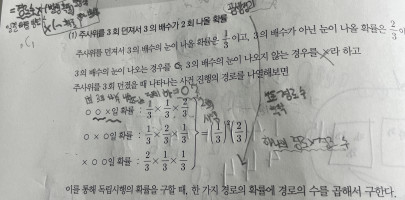 (1) 주사위를 3회 던져서 3의 배수가 2회 나올 확률
주사위를 던져서 3의 배수의 눈이 나올 확률은 1/3 이고, 3의 배수가 아닌 눈이 나올 확률은 2/3 이
3의 배수의 눈이 나오는 경우를 O, 3의 배수의 눈이 나오지 않는 경우를 X라 하고
주사위를 3회 던졌을 때 나타나는 사건 진행의 경로를 나열해보면
O O ×일 확률 : 1/3 × 1/3 × 2/3
O × O일 확률 : 1/3 × 2/3 × 1/3 = (1/3)²(2/3)
× O O일 확률 : 2/3 × 1/3 × 1/3
이를 통해 독립시행의 확률을 구할 때, 한 가지 경로의 확률에 경로의 수를 곱해서 구한다.